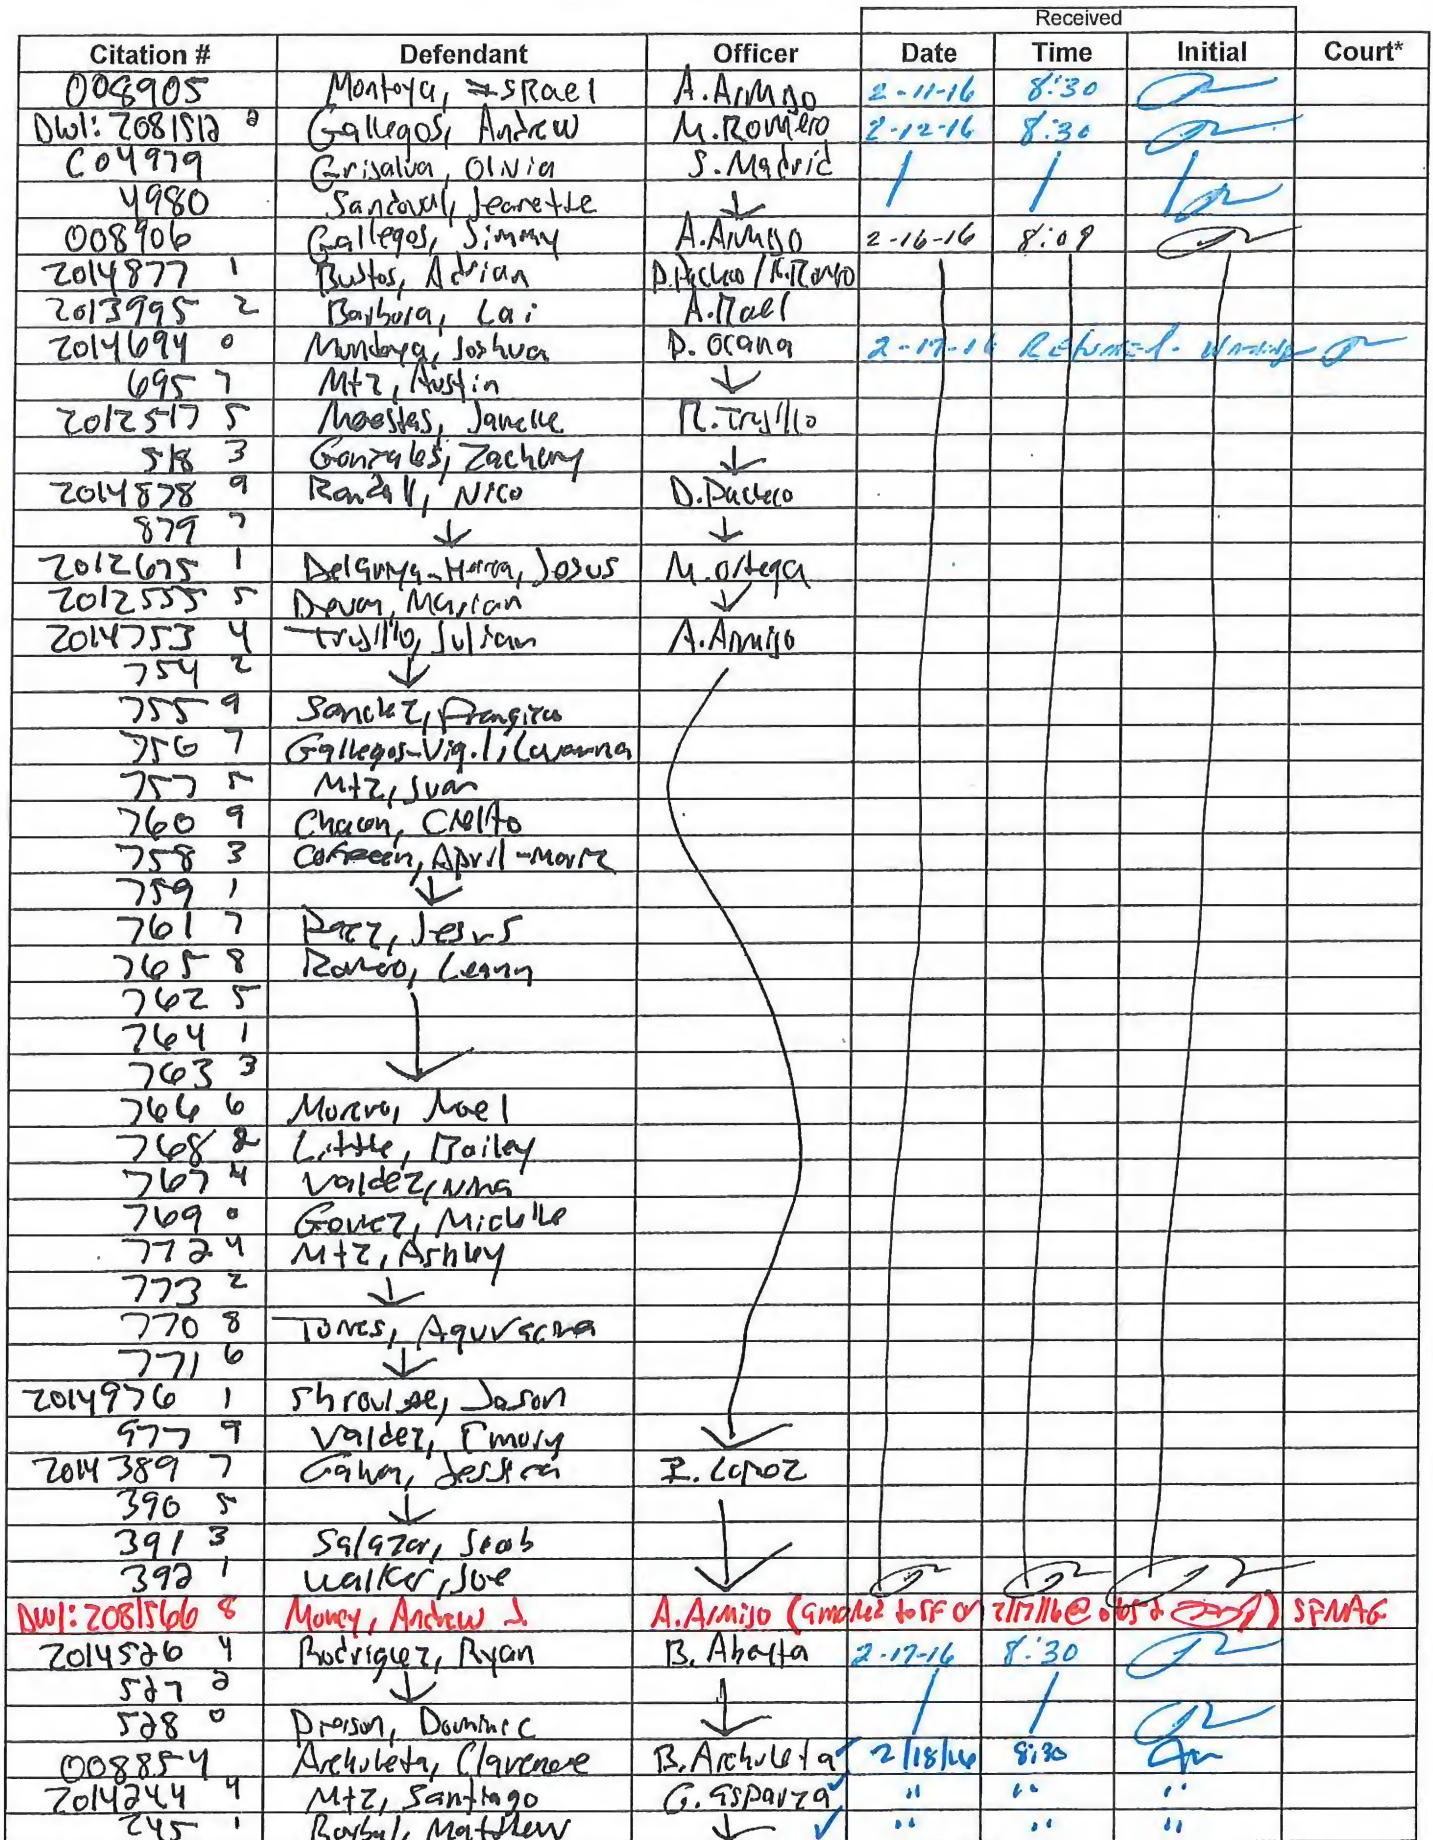 Received
Citation # Defendant Officer Date Time Initial Court*
008905 Montoya, Israel A. Armijo 2-11-16 8:30
DWI: 2081512 2 Gallegos, Andrew M. Romero 2-12-16 8:30
C04979 Grisalva, Olivia S. Madrid
4980 Sandoval, Jeanette ↓
008906 Gallegos, Jimmy A. Armijo 2-16-16 8:09
2014877 1 Bustos, Adrian D. Pacheco /
2013995 2 Barbora, Lai A. Mael
2014694 0 Joshua D. Ocana 2-17-16 Returned - Warning
695 7 Mtz, Austin ↓
2012517 5 Maestas, Janelle R. Trujillo
518 3 Gonzales, Zachery ↓
2014878 9 Randall, Nico D. Pacheco
879 7 ↓ ↓
2012675 1 Jesus M. Ortega
2012555 5 Marian ↓
2014753 4 Trujillo, Julian A. Armijo
754 2 ↓
755 9 Sanchez,
756 7 Gallegos-Vigil,
757 5 Mtz, Juan
760 9 Chacon,
758 3 April-Marie
759 1 ↓
761 7 Paez, Jesus
765 8 Romero, Leann
762 5
764 1
763 3
766 6 Noel
768 2 Little, Bailey
767 4 Valdez, Nina
769 0 Gomez, Michelle
772 4 Mtz, Ashley
773 2 ↓
770 8 Torres,
771 6 ↓
2014976 1 Jason
977 9 Valdez, Emory
2014389 7 Jessica I. Lopez
390 5 ↓
391 3 Salazar, Jacob
392 1 Walker, Joe ↓
DWI: 2081566 8 Money, Andrew J. A. Armijo ( to SF on 2/17/16 @ ) SFMAG
2014526 4 Rodriguez, Ryan B. Abeyta 2-17-16 8:30
527 2 ↓
528 0 Dominic ↓
008854 Archuleta, Clarence B. Archuleta ✓ 2/18/16 8:30
2014244 4 Mtz, Santiago G. Esparza ✓ " " "
245 1 Matthew ↓ ✓ " " "